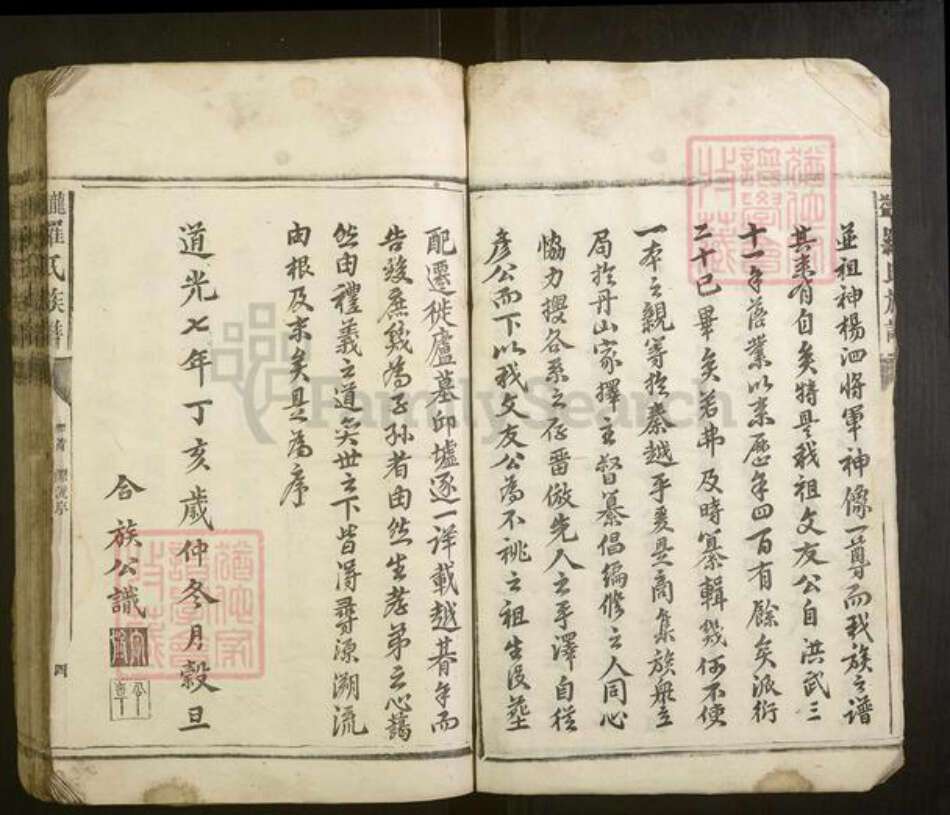 並祖神楊泗將軍神像一尊而我族之譜
其來有自矣特是我祖文友公自洪武三
十一年落業以來歷年四百有餘矣派衍
二十已畢矣若弗及時纂輯幾何不使
一本之親等於秦越乎爰是商集族衆立
局於丹山家擇主督纂倡編修之人同心
協力搜各系之存番倣先人之手澤自從
彥公而下以我文友公為不祧之祖生没塟
配遷徙廬墓邱墟逐一詳載越暮年而
告竣庶幾為子孫者由然生孝弟之心藹
然由禮義之道矣世之下皆得尋源溯流
由根及末矣是為序
道光七年丁亥歲仲冬月穀旦
合族公識
羅氏族譜
源流序
四
FamilySearch